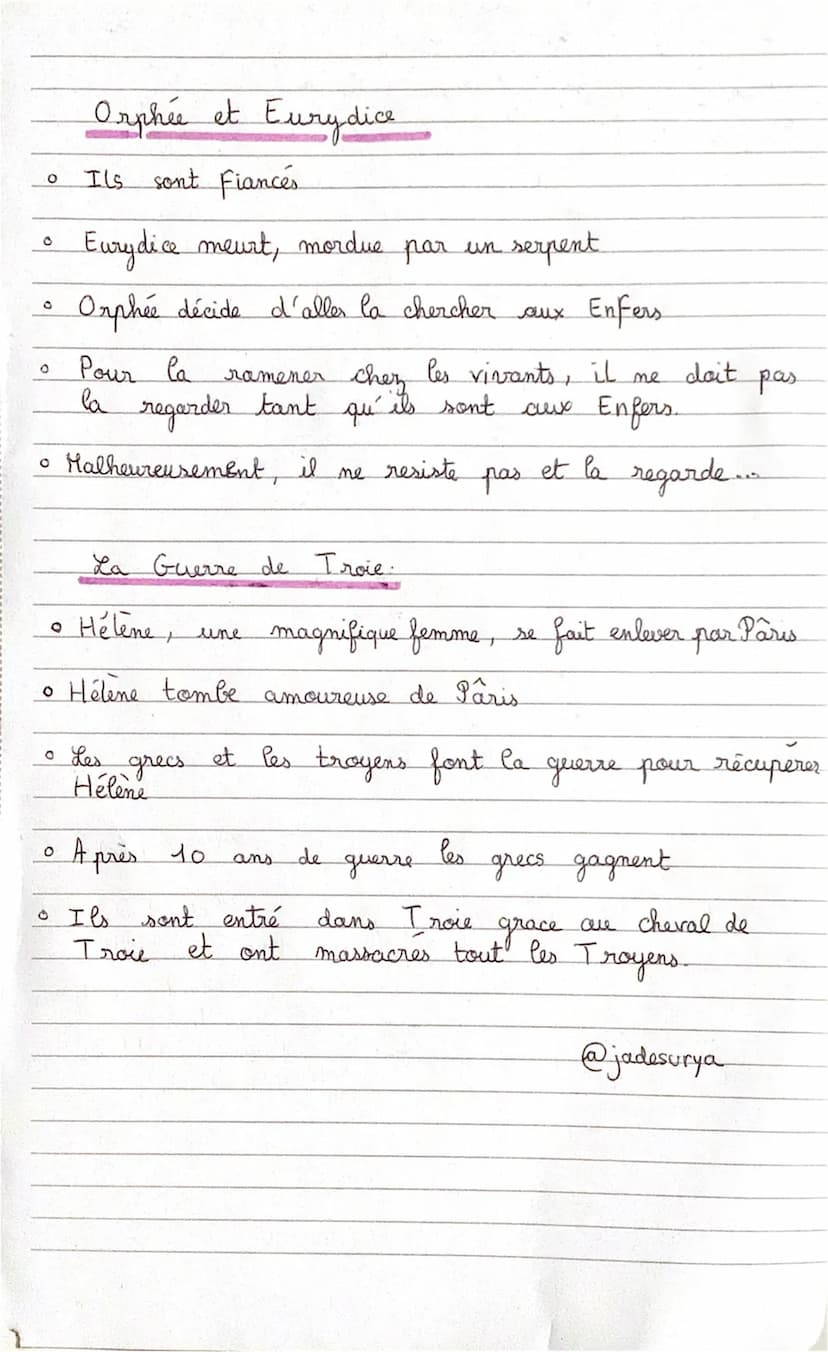 Orphée et Eurydice
o Ils sont fiancés
o Eurydice meurt, mordue par un serpent
o Orphée décide d'aller la chercher aux Enfers
o Pour la ramener chez les vivants, il ne doit pas
la regarder tant qu'ils sont aux Enfers.
o Malheureusement, il ne resiste pas et la regarde...
La Guerre de Troie.
o Hélène, une magnifique femme, se fait enlever par Pâris
o Hélène tombe amoureuse de Pâris
o Les grecs et les troyens font la guerre pour récupérer
Hélène
o Après 10 ans de guerre les grecs gagnent
o Ils sont entré dans Troie grace au cheval de
Troie et ont massacrés tout les Troyens.
@jadesurya